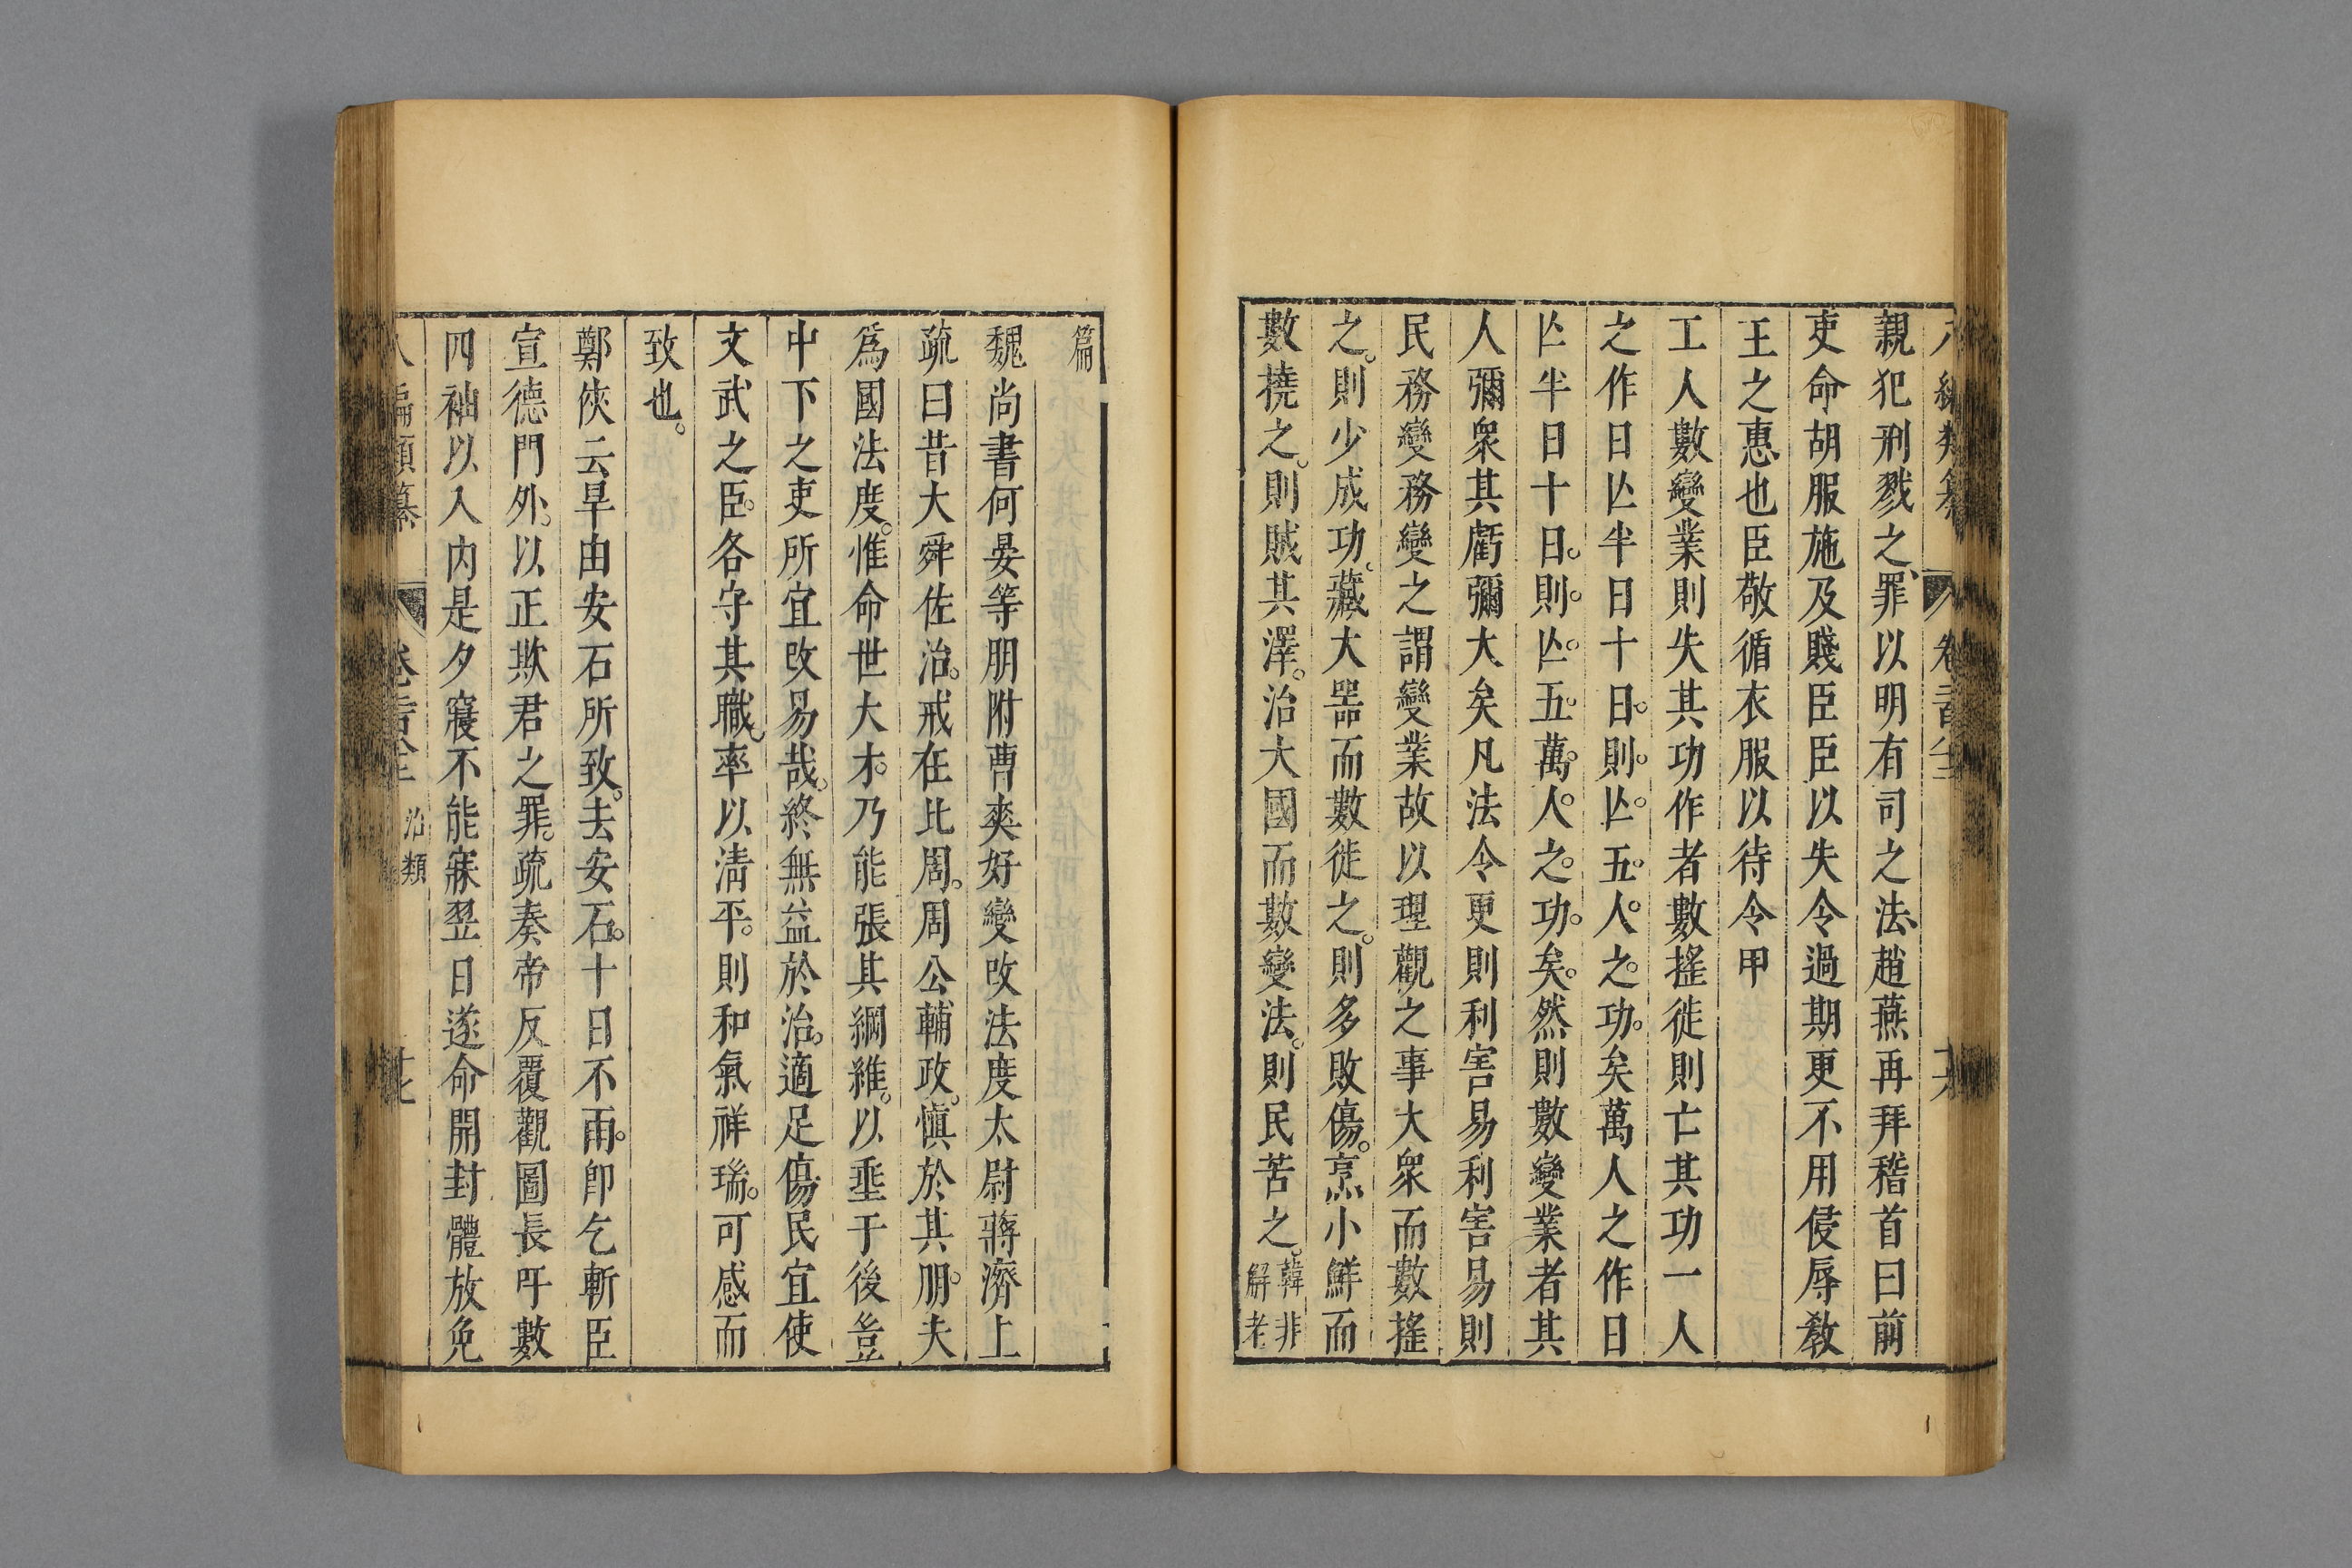 親犯刑戮之罪以明有司之法趙燕再拜稽首曰前
吏命胡服施及賤臣臣以失令過期更不用侵辱教
王之惠也臣敬循衣服以待令甲
工人數變業則失其功作者數搖徙則亡其功一人
之作日亾半日十日則亾五人之功矣萬人之作日
亾半日十日則亾五萬人之功矣然則數變業者其
人彌衆其虧彌大矣凡法令更則利害易利害易則
民務變務變之謂變業故以理觀之事大衆而數搖
之則少成功藏大器而數徙之則多敗傷烹小鮮而
數撓之則賊其澤治大國而數變法則民苦之韓非
解老
篇
魏尚書何晏等朋附曹爽好變改法度太尉蔣濟上
疏曰昔大舜佐治戒在比周周公輔政慎於其朋夫
爲國法度惟命世大才乃能張其綱維以垂于後豈
中下之吏所宜改易哉終無益於治適足傷民宜使
文武之臣各守其職率以清平則和氣祥瑞可感而
致也
鄭俠云旱由安石所致去安石十日不雨卽乞斬臣
宣德門外以正欺君之罪疏奏帝反覆觀圖長吁數
四袖以入内是夕寢不能寐翌日遂命開封體放免
編類纂
治類